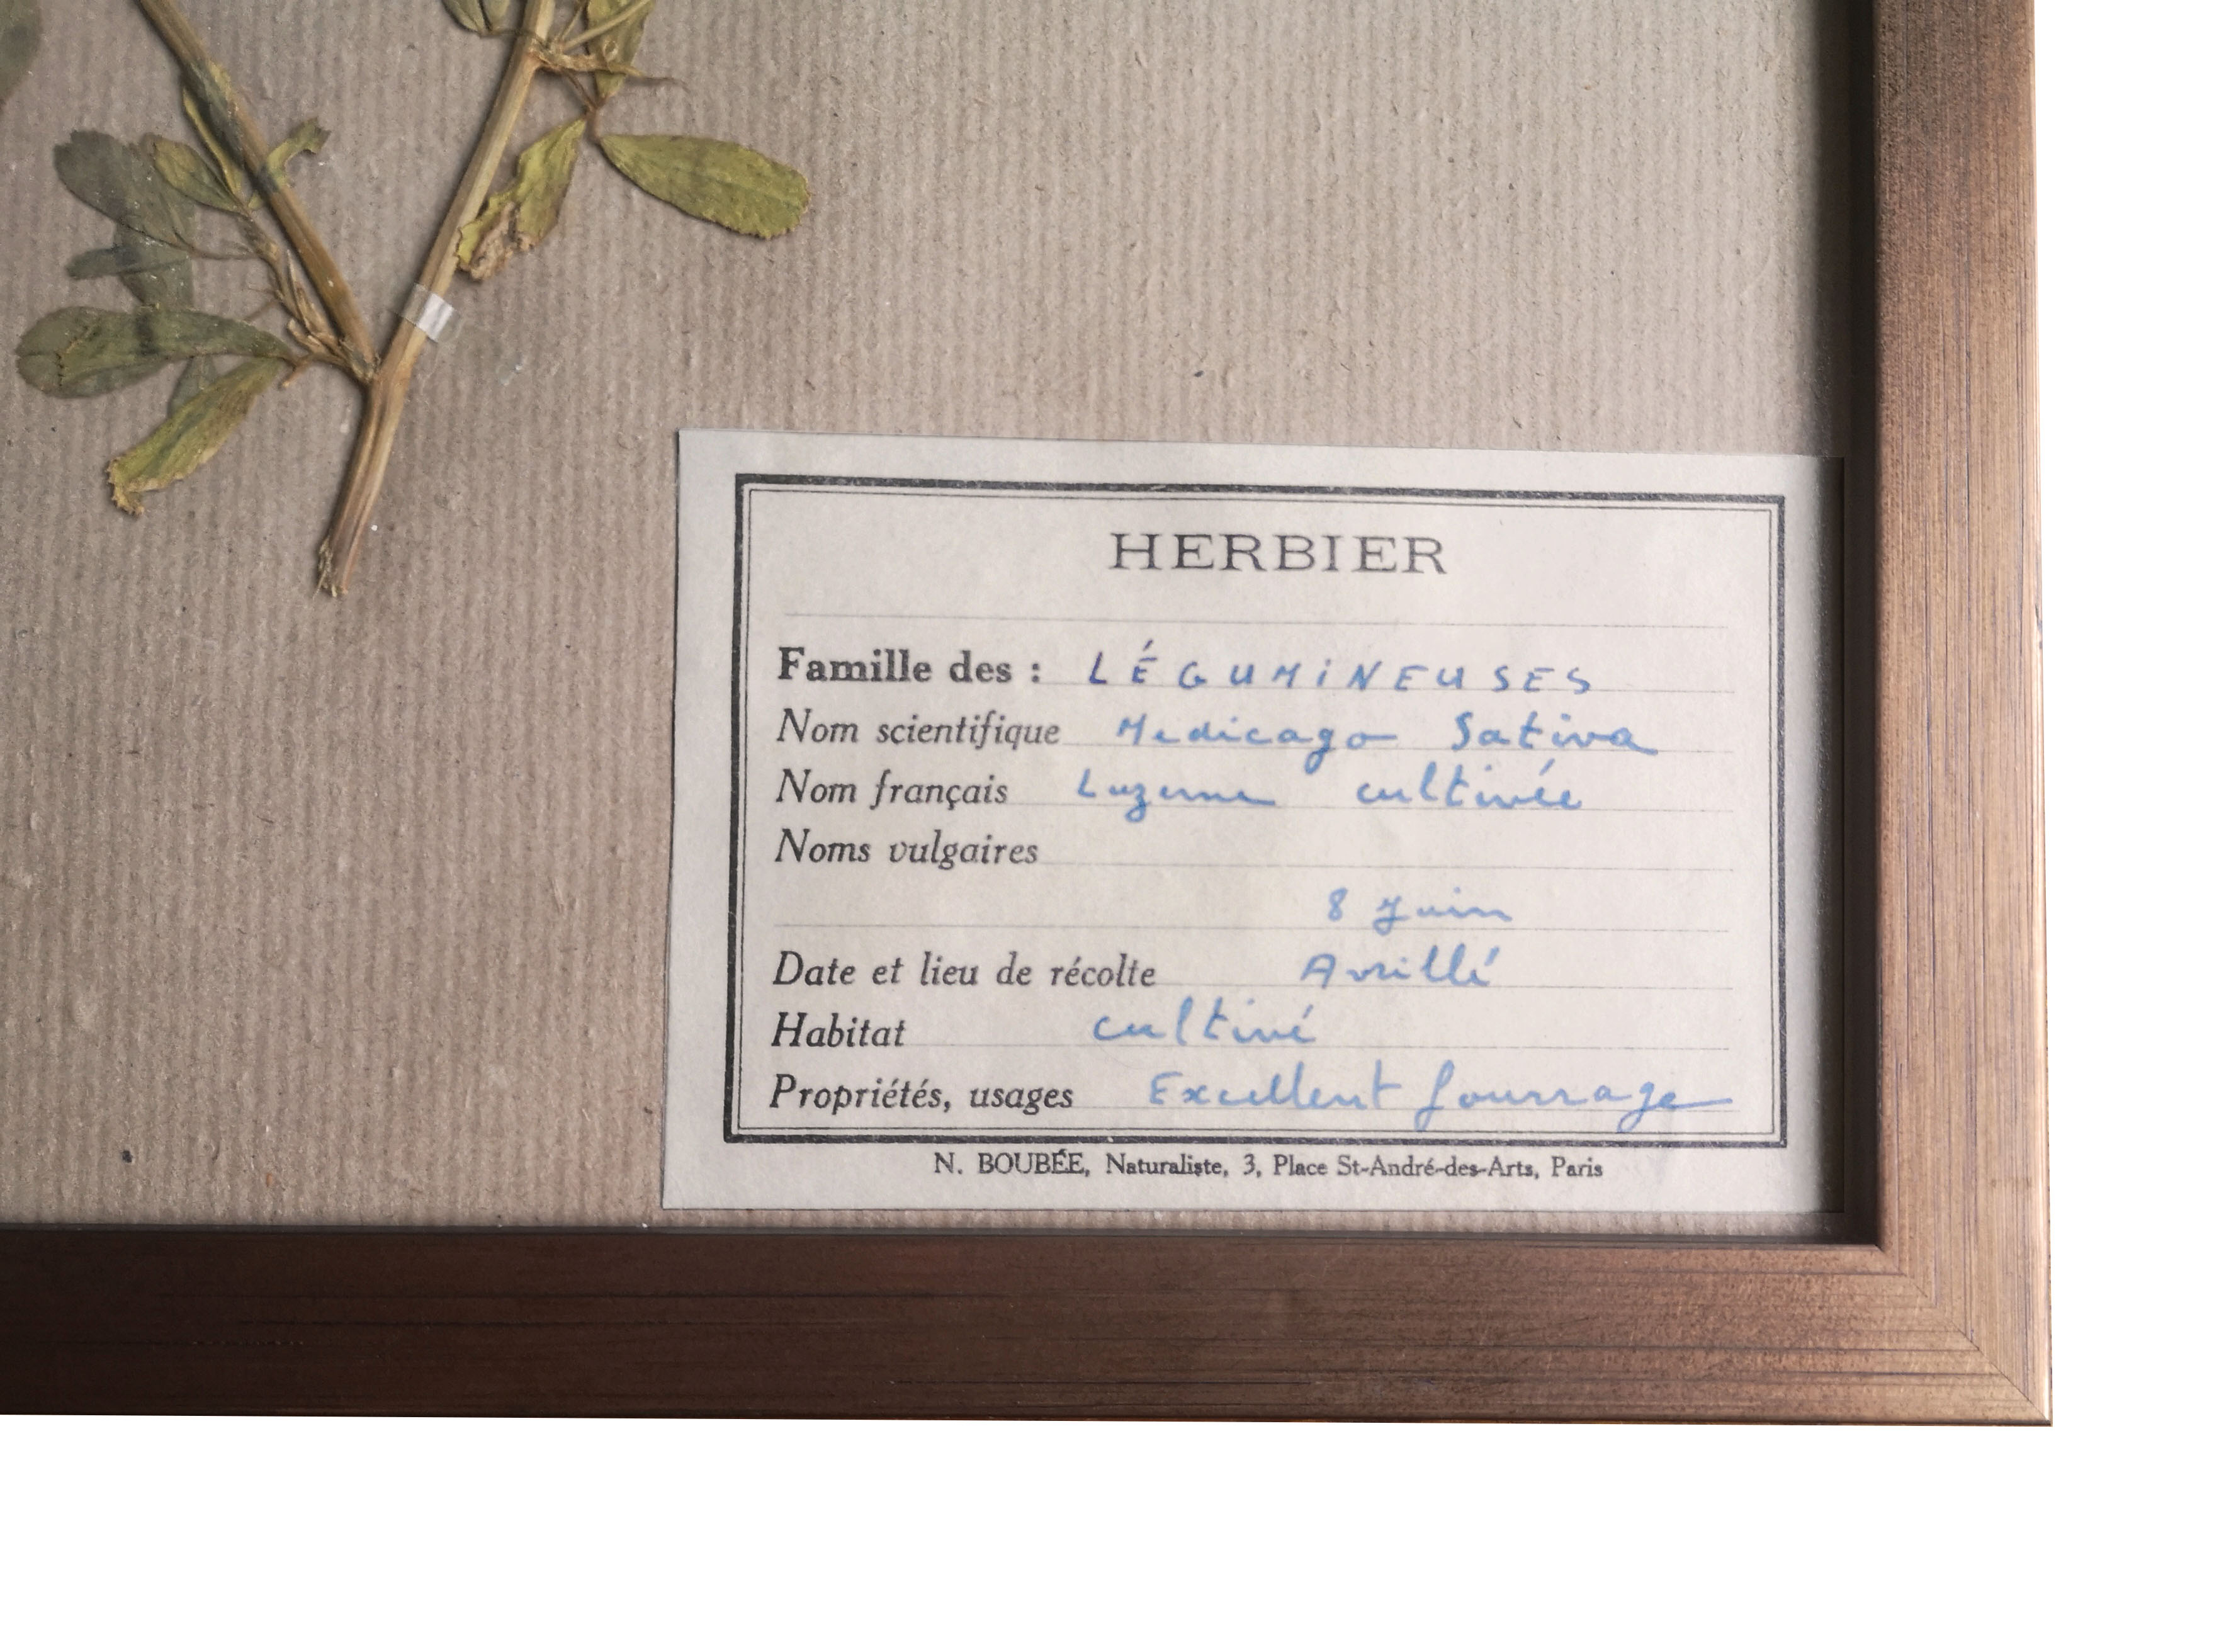 HERBIER
Famille des : LÉGUMiNEUSES
Nom scientifique Medicago Sativa
Nom français Luzerne cultivée
Noms vulgaires
8 Juin
Date et lieu de récolte Avrillé
Habitat cultivé
Propriétés, usages Excellent fourrage
N. BOUBÉE, Naturaliste, 3, Place St-André-des-Arts, Paris